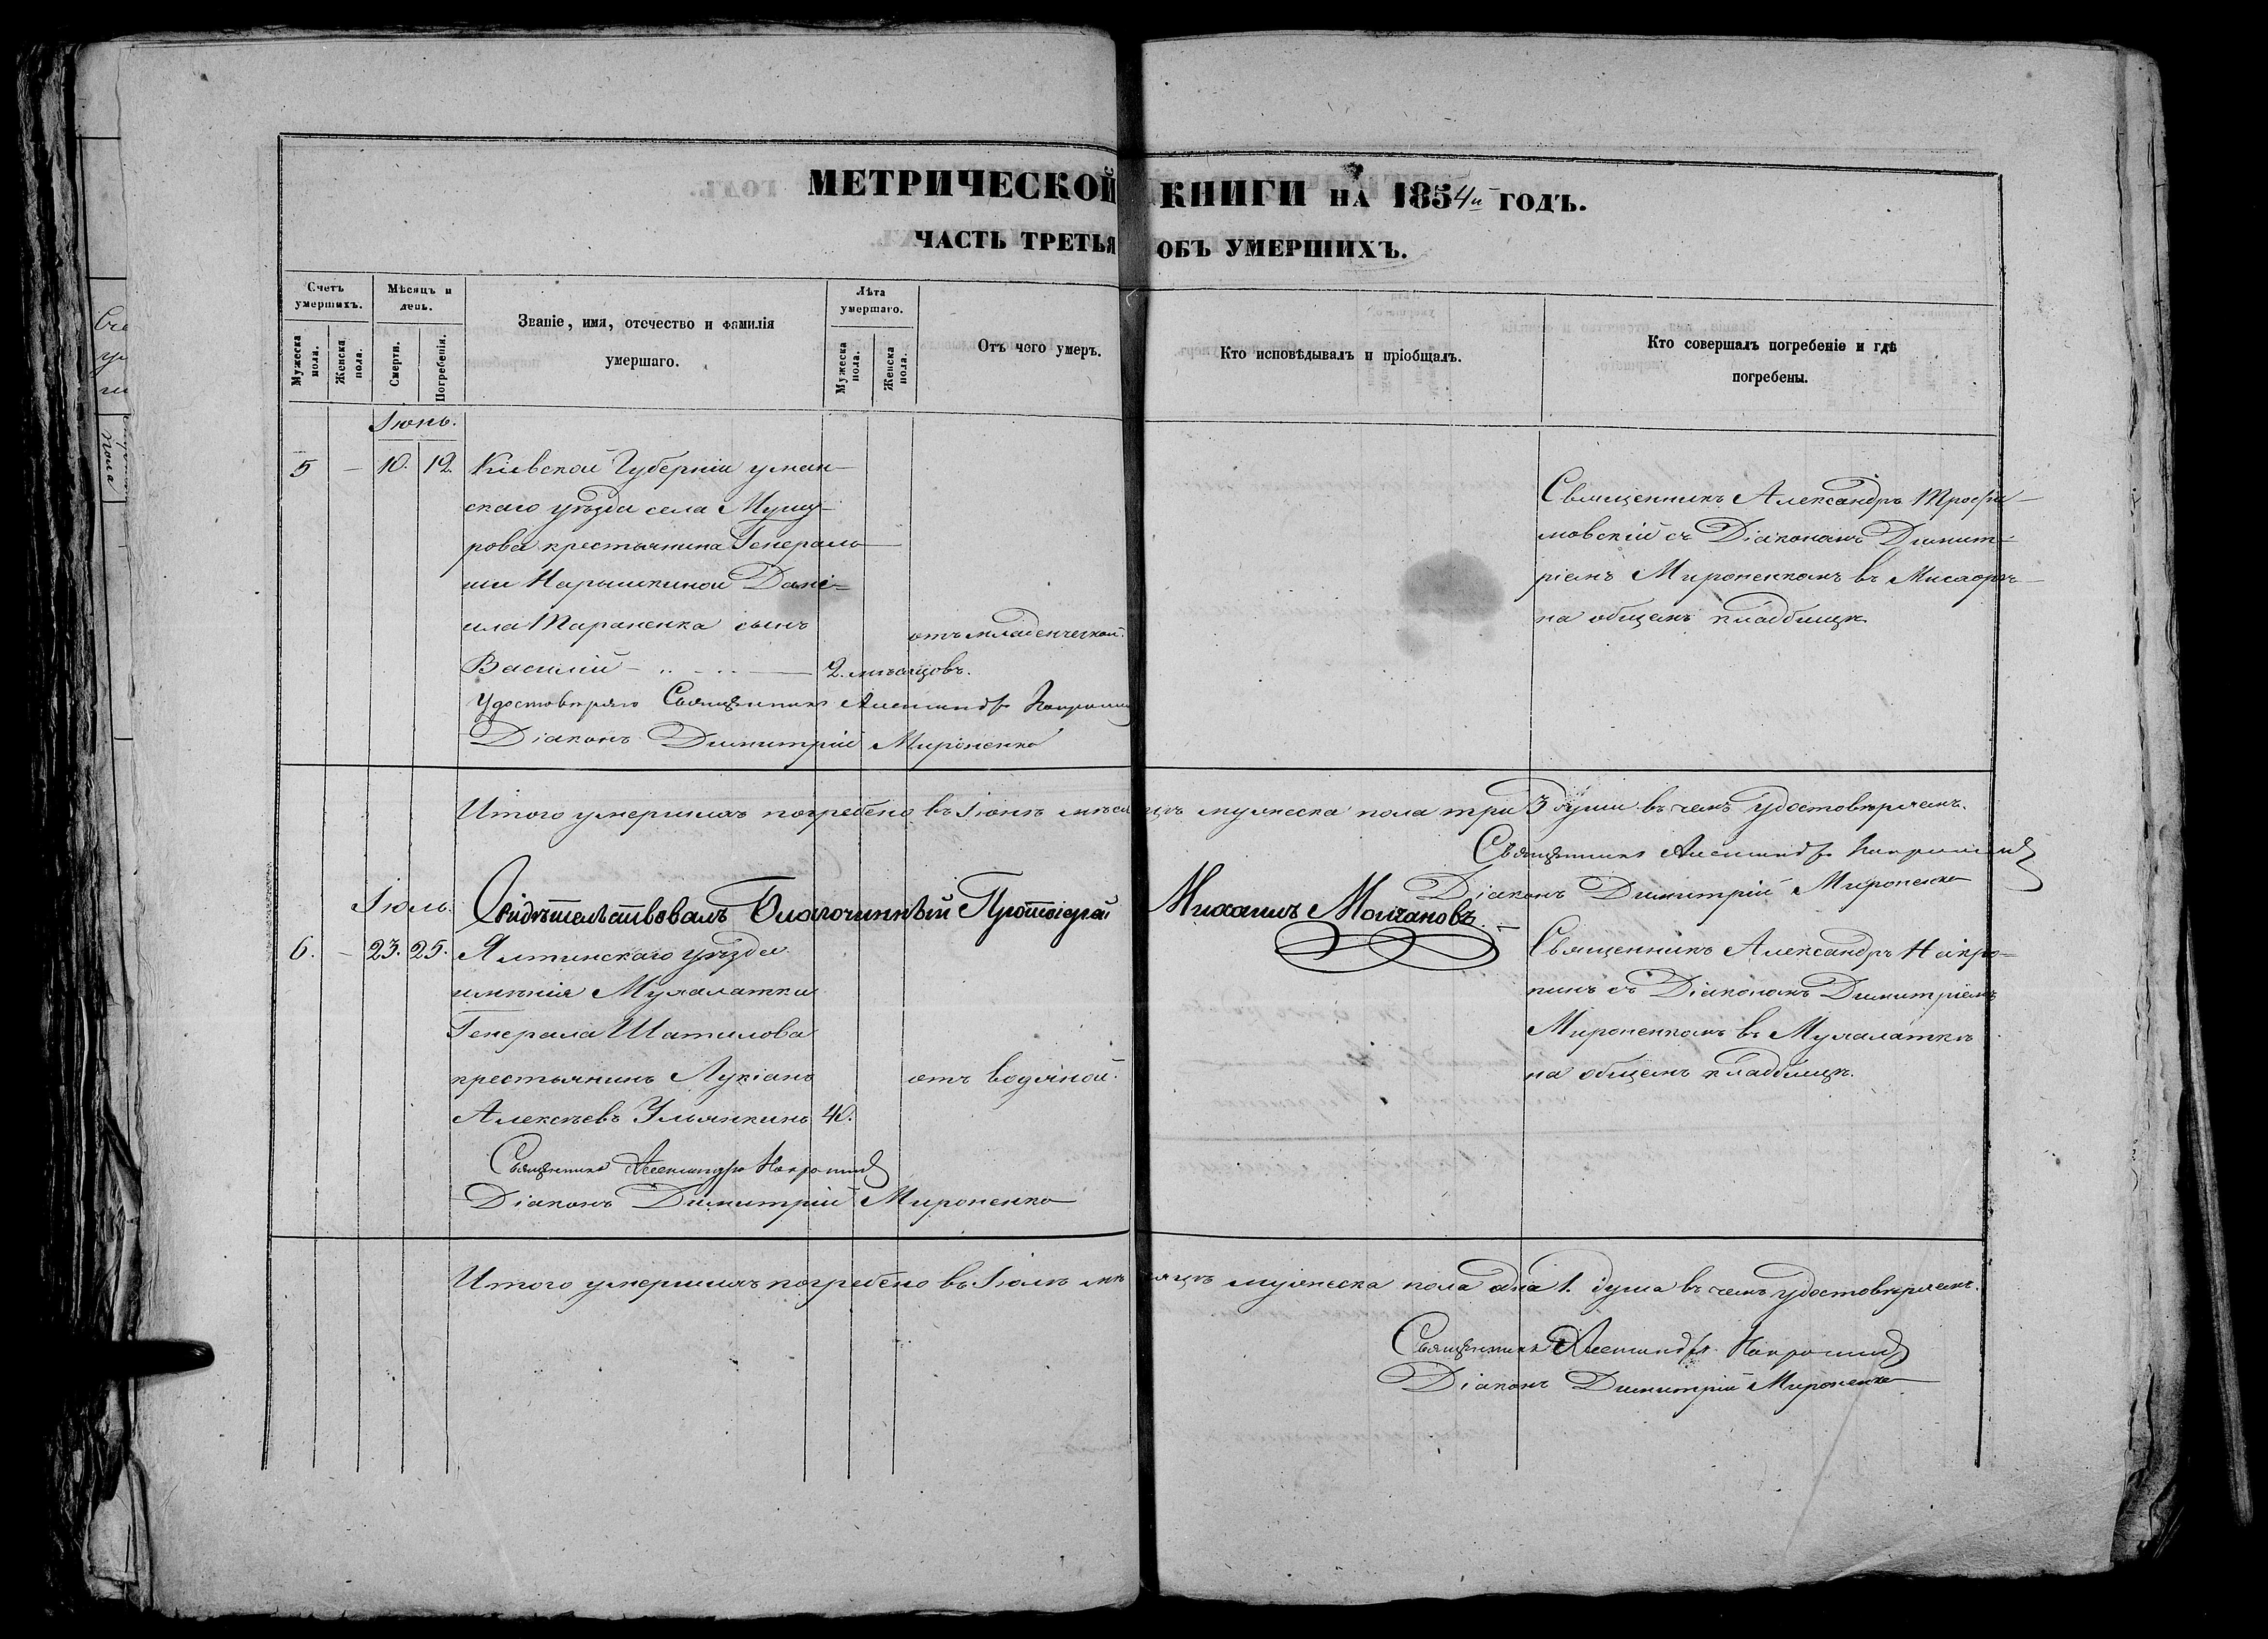 МЕТРИЧЕСКОЙ КНИГИ НА 1854й ГОДЪ.
ЧАСТЬ ТРЕТЬЯ ОБЪ УМЕРШИХЪ.
Счетъ умершихъ.
Мѣсяцъ и день.
Званіе, имя, отечество и фамилія умершаго.
Лѣта умершаго.
Отъ чего умеръ.
Кто исповѣдывалъ и пріобщалъ.
Кто совершалъ погребеніе и гдѣ погребены.
Мужеска пола.
Женска пола.
Смерти.
Погребенія.
Мужеска пола.
Женска пола.
Іюнь.
5 — 10. 12. Кіевской Губерніи уман-
скаго уѣзда села
рова крестьянина Генераль-
ши Нарышкиной Дані-
ила Тараненка сынъ
Василій — 2. мѣсяцовъ.
отъ младенческой.
Священникъ Александръ
с Діакономъ Димит-
ріемъ Мироненкомъ въ Мисхорѣ
на общемъ кладбищѣ.
Удостовѣряю Священникъ Александръ
Діаконъ Димитрій Мироненко
Итого умершихъ погребено въ Іюнѣ мѣсяцѣ мужеска пола три 3 души въ чемъ удостовѣряемъ.
Священникъ Александръ
Діаконъ Димитрій Мироненко
Іюль.
Свидѣтельствовалъ Благочинный Протоіерей Михаилъ Молчановъ.
6. — 23. 25. Ялтинскаго уѣзда
имѣнія Мухалатки
Генерала Шатилова
крестьянинъ Лукіанъ
Алексѣевъ Ульянкинъ 40.
отъ водяной.
Священникъ Александръ
с Діакономъ Димитріемъ
Мироненкомъ въ Мухалаткѣ
на общемъ кладбищѣ.
Священникъ Александръ
Діаконъ Димитрій Мироненко
Итого умершихъ погребено въ Іюлѣ мѣсяцѣ мужеска пола одна 1. душа въ чемъ удостовѣряемъ.
Священникъ Александръ
Діаконъ Димитрій Мироненко